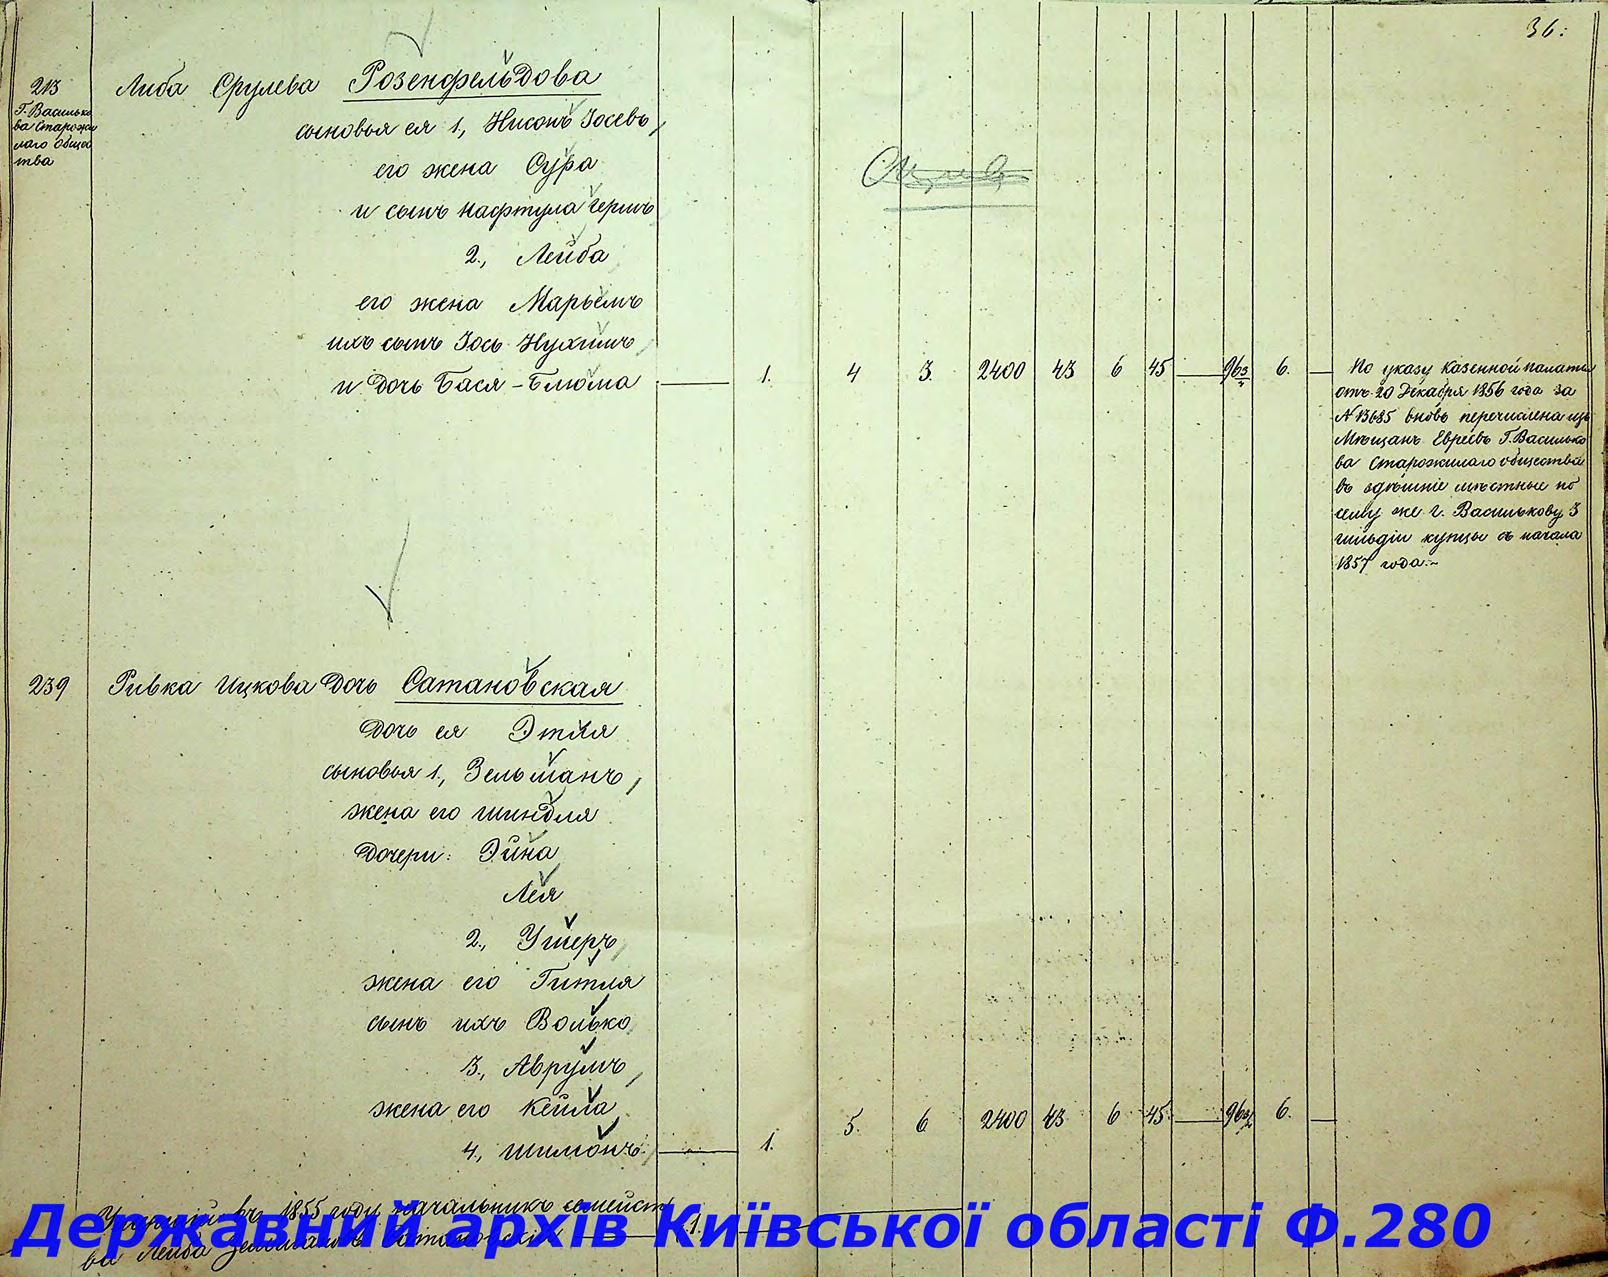 36:
213
Г. Василько
ва Старожи
лаго Общес
тва
Либа Срулева Розенфельдова
сыновья ея 1, Нисонъ Іосевъ,
его жена Сура
и сынъ Нафтула Гершъ
2., Лейба
его жена Марьемъ
ихъ сынъ Іось Нухимъ
и дочь Бася-Блюма 1. 4 3. 2400 43 6 45 96 6.
По указу Казенной палаты
отъ 20 Декабря 1856 года за
№ 13685 вновь перечислена изъ
Мещанъ Евреевъ Г. Василько
ва Старожилаго общества
въ здешніе местные по
сему же г. Василькову 3
гильдіи купцы съ начала
1857 года.
239 Ривка Ицкова дочь Сатановская
дочь ея Этля
сыновья 1, Зельманъ,
жена его Шиндля
дочери: Эйна
Лея
2., Ушеръ,
жена его Гитля
сынъ ихъ Волько
3., Аврумъ,
жена его Кейла
4, Шимонъ. 1. 5. 6 2400 43 6 45. 96 6.
въ 1855 году начальникъ семейст
ва Лейба Зельмановъ 1.
Державний архів Київської області Ф.280